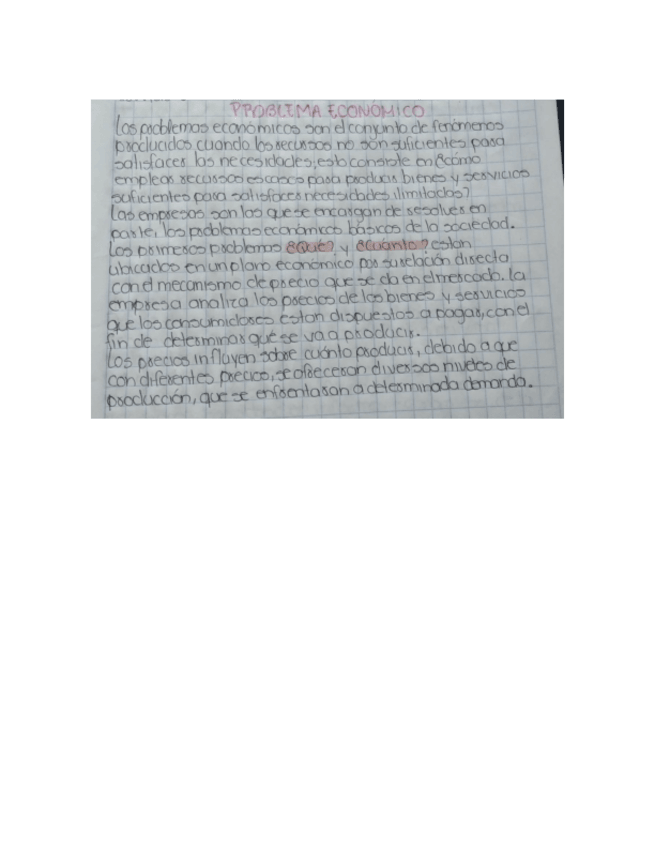 PROBLEMA ECONOMICO
Los problemas económicos son el conjunto de fenómenos
producidos cuando los recursos no son suficientes para
satisfacer las necesidades; esto consiste en ¿cómo
emplear recursos escasos para producir bienes y servicios
suficientes para satisfacer necesidades ilimitadas?
Las empresas son las que se encargan de resolver en
parte, los problemas económicos básicos de la sociedad.
Los primeros problemas ¿Qué? y ¿Cuánto? están
ubicados en un plano económico por su relación directa
con el mecanismo de precio que se da en el mercado. La
empresa analiza los precios de los bienes y servicios
que los consumidores estan dispuestos a pagar, con el
fin de determinar qué se va a producir.
Los precios influyen sobre cuánto producir, debido a que
con diferentes precios, se ofreceran diversos niveles de
producción, que se enfrontaran a determinada demanda.